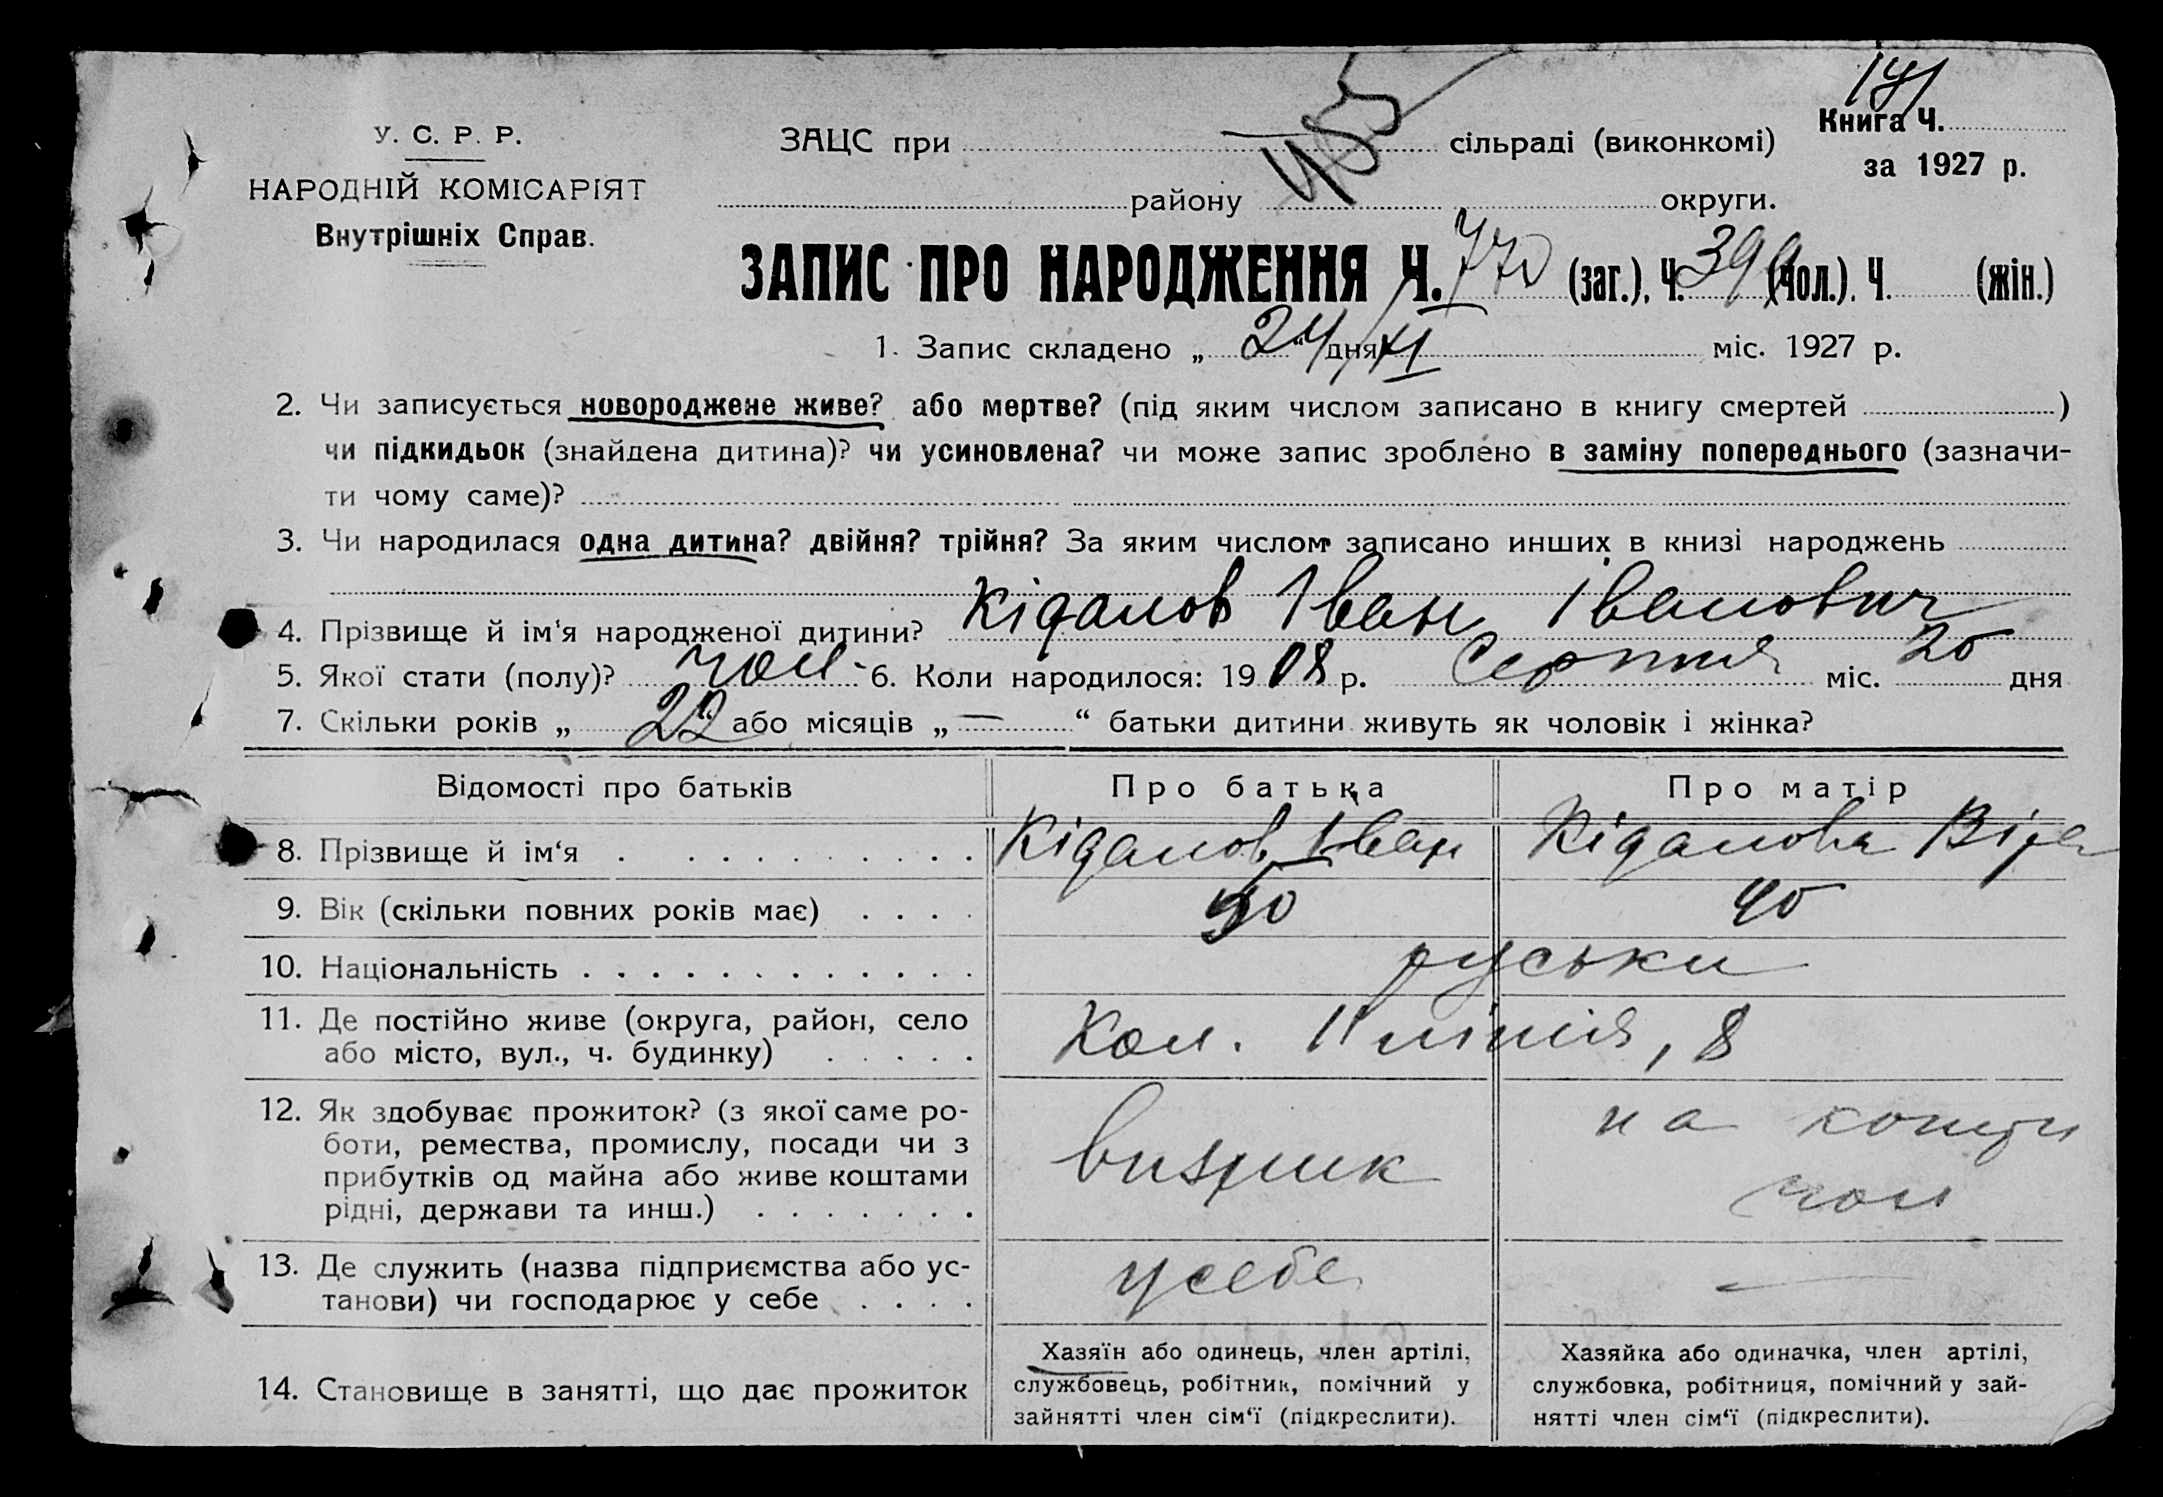 У. С. Р. Р.
НАРОДНІЙ КОМІСАРІЯТ
Внутрішніх Справ.
ЗАЦС при 455 сільраді (виконкомі)
району округи.
Книга Ч.
за 1927 р.
ЗАПИС ПРО НАРОДЖЕННЯ Ч. 770 (заг.), Ч. 399 (чол.). Ч. (жін.)
1. Запис складено „ 24 “ дня XI міс. 1927 р.
2. Чи записується новороджене живе? або мертве? (під яким числом записано в книгу смертей )
чи підкидьок (знайдена дитина)? чи усиновлена? чи може запис зроблено в заміну попереднього (зазначи-
ти чому саме)?
3. Чи народилася одна дитина? двійня? трійня? За яким числом записано инших в книзі народжень
4. Прізвище й ім‘я народженої дитини? Кіданов Іван Іванович
5. Якої стати (полу)? чол 6. Коли народилося: 1908 р. Серпня міс. 25 дня
7. Скільки років „ 22 “ або місяців „ — “ батьки дитини живуть як чоловік і жінка?
Відомості про батьків Про батька Про матір
8. Прізвище й ім‘я . . . . . . . . . . Кіданов Іван Кіданова Віра
9. Вік (скільки повних років має) . . . . 50 45
10. Національність . . . . . . . . . . . руськи
11. Де постійно живе (округа, район, село
або місто, вул., ч. будинку) . . . . . Кол. II лінія, 8
12. Як здобуває прожиток? (з якої саме ро-
боти, ремества, промислу, посади чи з
прибутків од майна або живе коштами
рідні, держави та инш.) . . . . . . .
візник
на кошти
чол
13. Де служить (назва підприємства або ус-
танови) чи господарює у себе . . . . у себе —
14. Становище в занятті, що дає прожиток
Хазяїн або одинець, член артілі,
службовець, робітник, помічний у
зайнятті член сім‘ї (підкреслити).
Хазяйка або одиначка, член артілі,
службовка, робітниця, помічний у зай-
нятті член сім‘ї (підкреслити).